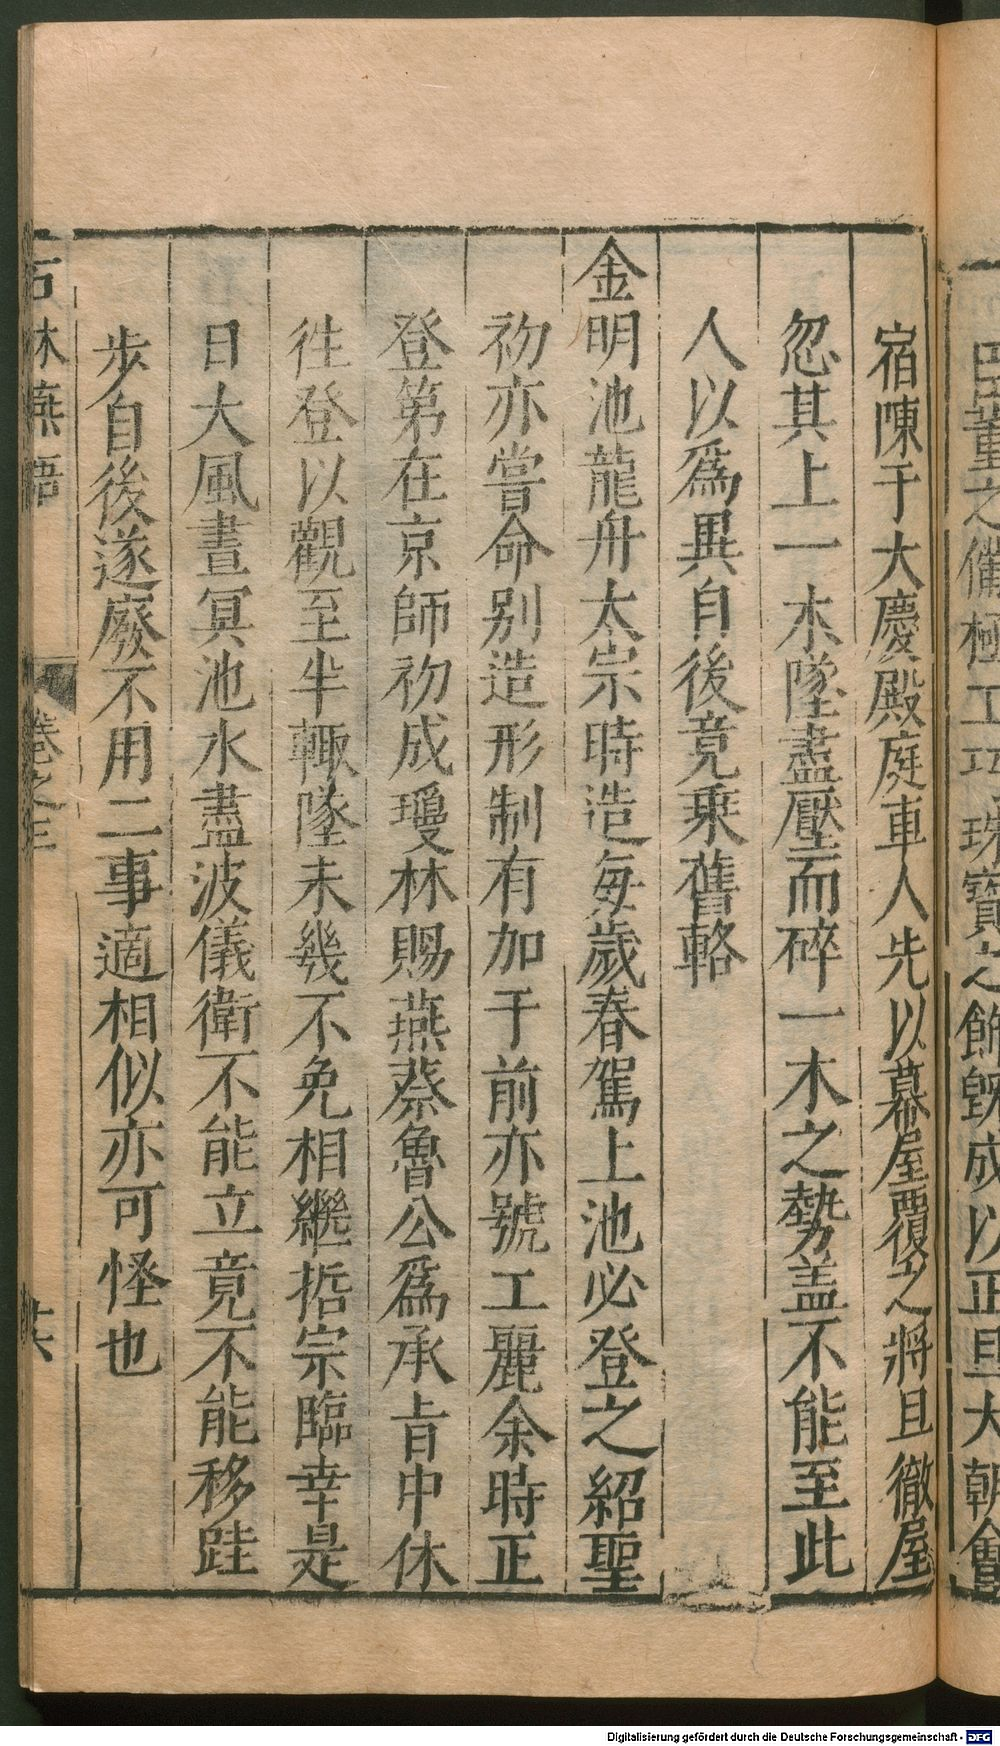 田董之備極工巧珠寶之飾旣成以正旦大朝會
宿陳于大慶殿庭車人先以幕屋覆之將旦徹屋
忽其上一木墜盡壓而碎一木之勢盖不能至此
人以爲異自後竟乗舊輅
金明池龍舟太宗時造每歲春駕上池必登之紹聖
初亦嘗命别造形制有加于前亦號工麗余時正
登第在京師初成瓊林賜燕蔡魯公爲承㫖中休
徃登以觀至半輙墜未幾不免相繼哲宗臨幸是
日大風晝冥池水盡波儀衛不能立竟不能移跬
步自後遂廢不用二事適相似亦可怪也
石林燕語
卷之三
Digitalisierung gefördert durch die Deutsche Forschungsgemeinschaft - DFG